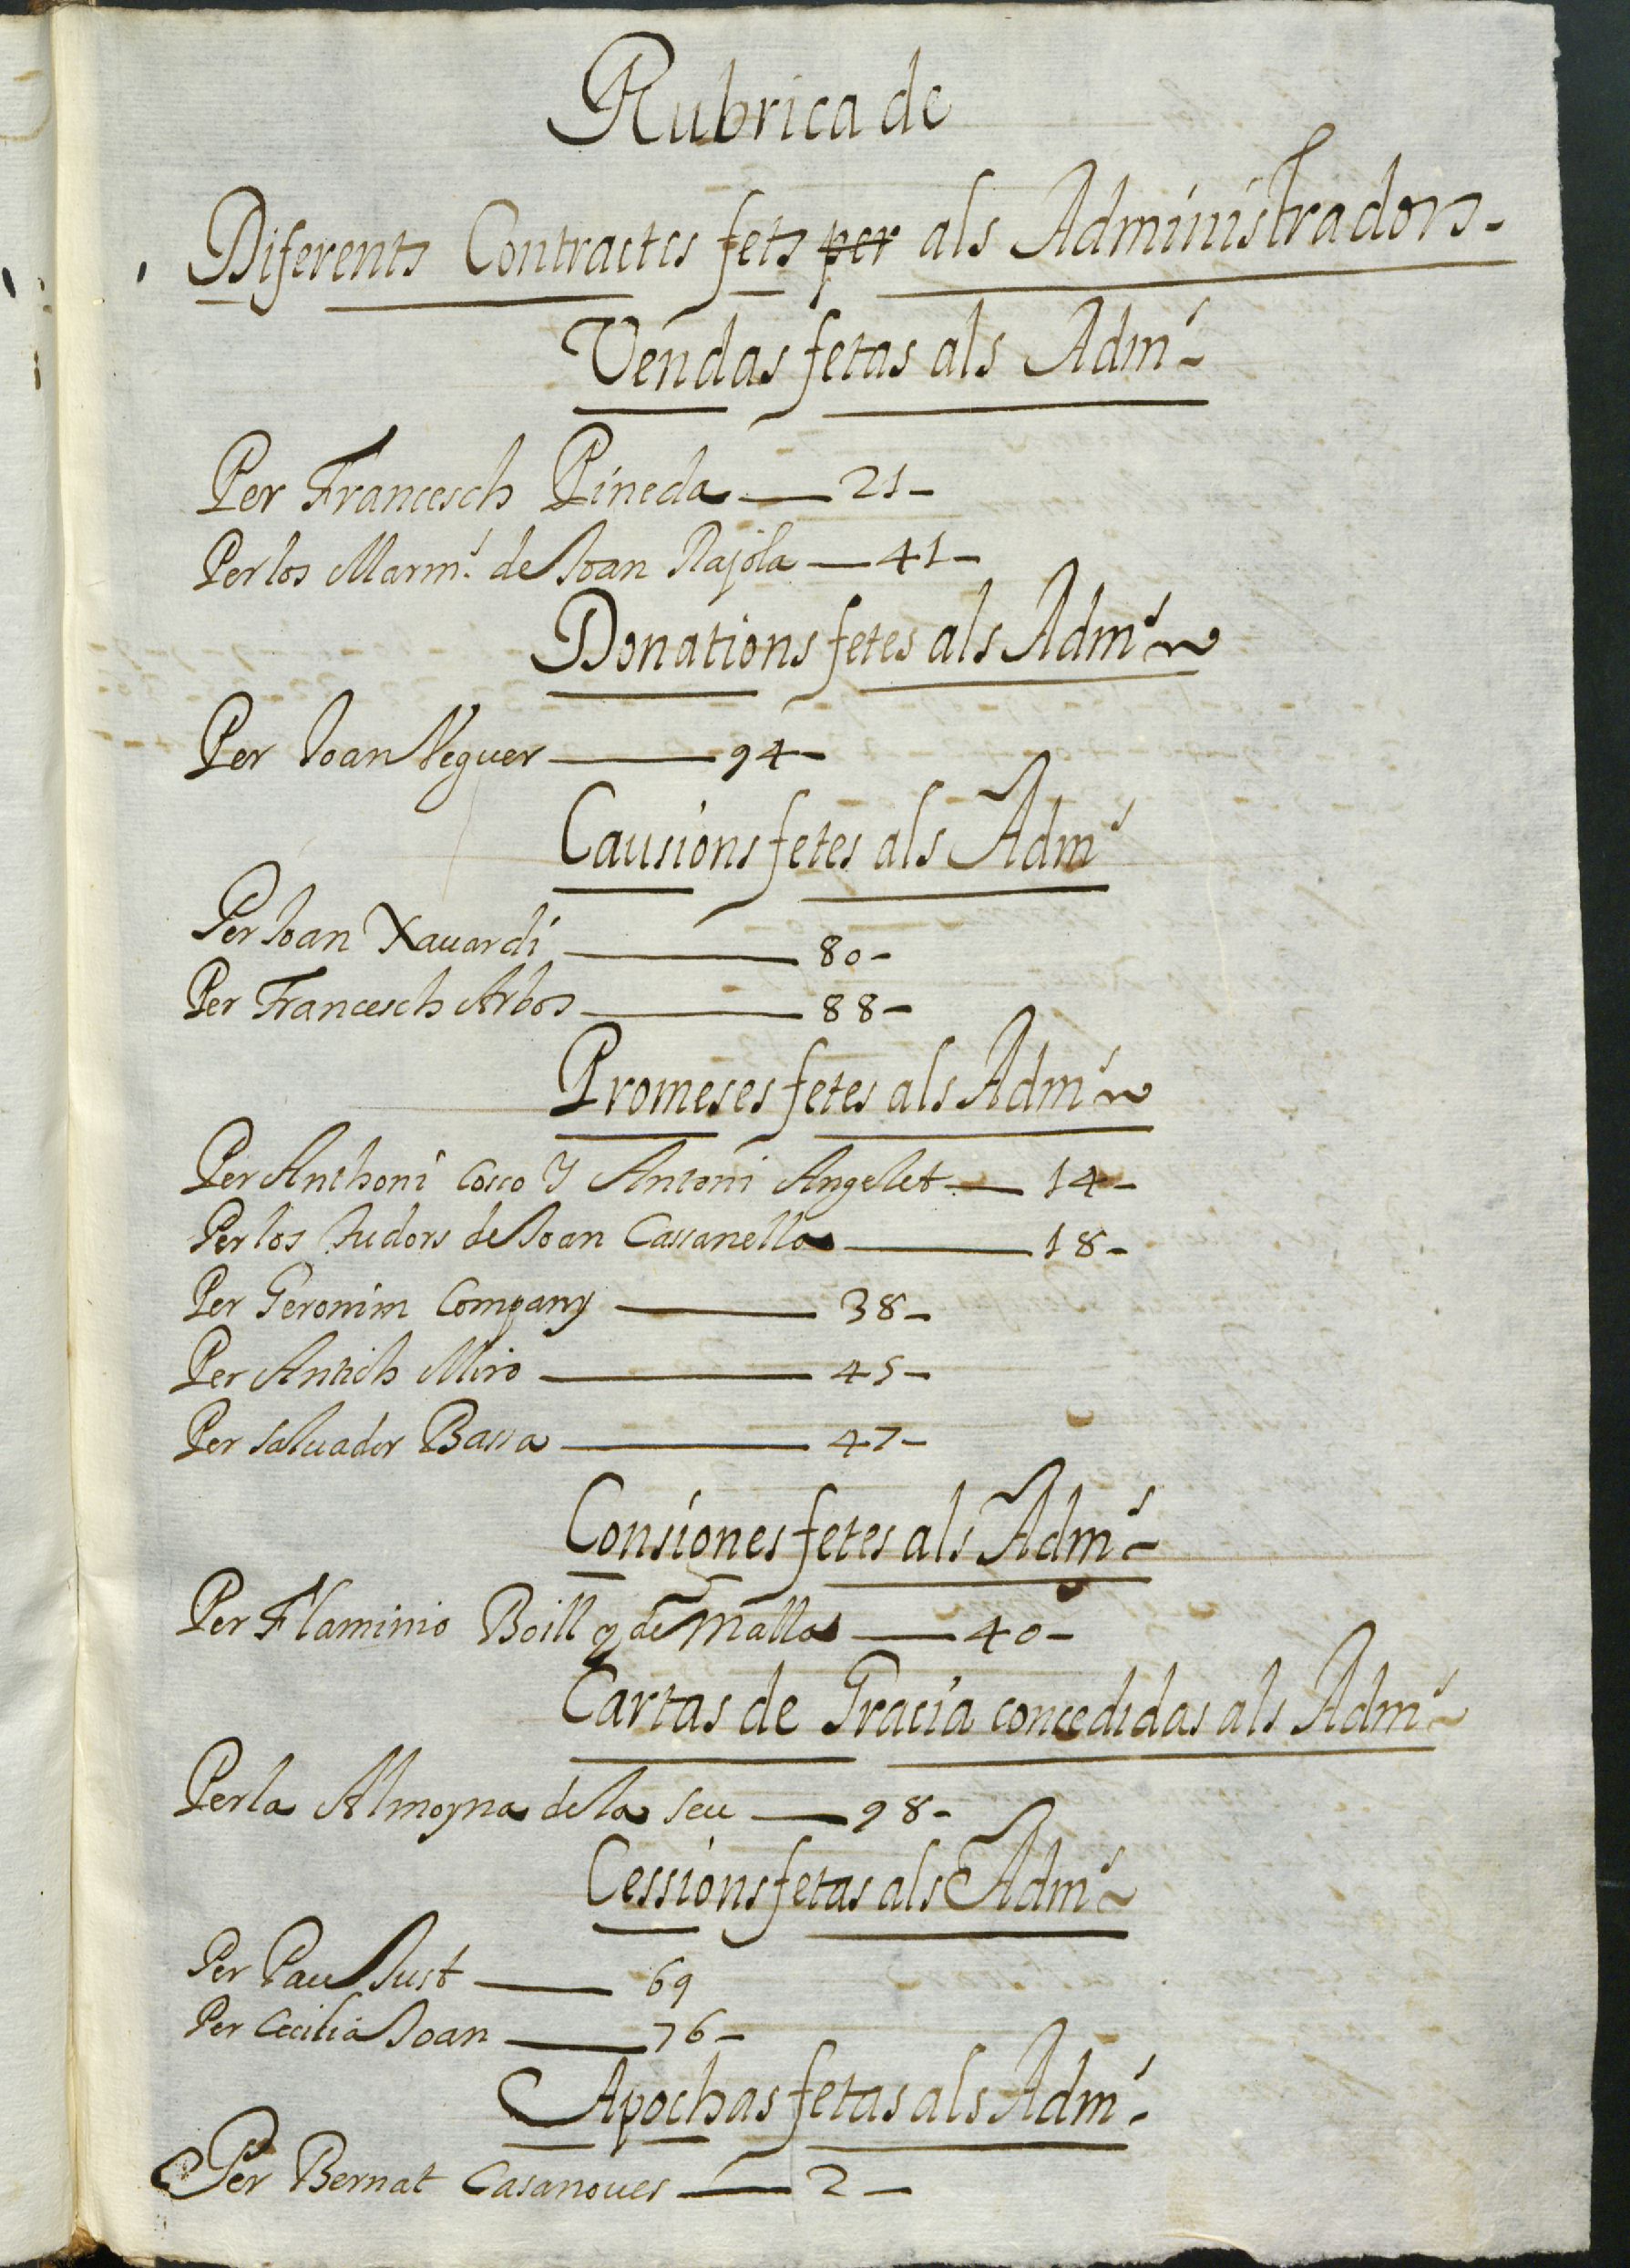 Rubrica de
Diferents Contractes fets per als Administradors.
Vendas fetas als Adm.
Per Francesch Pineda — 21 –
Per los Marm.' de Joan Rajola — 41 –
Donations fetes als Adm.
Per Joan Neguer — 94 –
Causions fetes als Adm
Per Joan Xauardi — 80 –
Per Francesch Arbos — 88 –
Promeses fetes als Adm
Per Anthoni Cosco Y Antoni Angelet — 14 –
Per los Tudors de Joan Cassanella — 18 –
Per Geronim Company — 38 –
Per Antich Miro — 45 –
Per Saluador Bassa — 47 –
Consiones fetes als Adm
Per Flaminio Boill y de Malla — 40 –
Cartas de Gracia concedidas als Adm
Per la Almoyna de la Seu — 98 –
Cessions fetas als Adm
Per Pau Just — 69
Per Cecilia Joan — 76 –
Apochas fetas als Adm.
Per Bernat Casanoues — 2 –